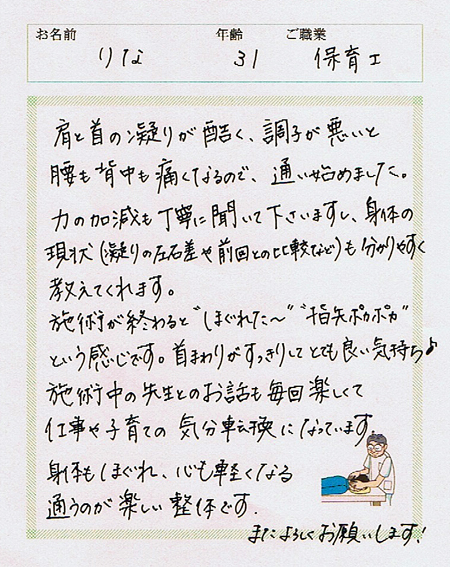 お名前 年齢 ご職業
りな 31 保育士
肩と首の凝りが酷く、調子が悪いと
腰も背中も痛くなるので、通い始めました。
力の加減も丁寧に聞いて下さいますし、身体の
現状(凝りの左右差や前回との比較など)も分かりやすく
教えてくれます。
施術が終わると"ほぐれた〜""指先ポカポカ"
という感じです。首まわりがすっきりしてとても良い気持ち♪
施術中の先生とのお話も毎回楽しくて
仕事や子育ての気分転換になっています。
身体もほぐれ、心も軽くなる
通うのが楽しい整体です.
またよろしくお願いします!